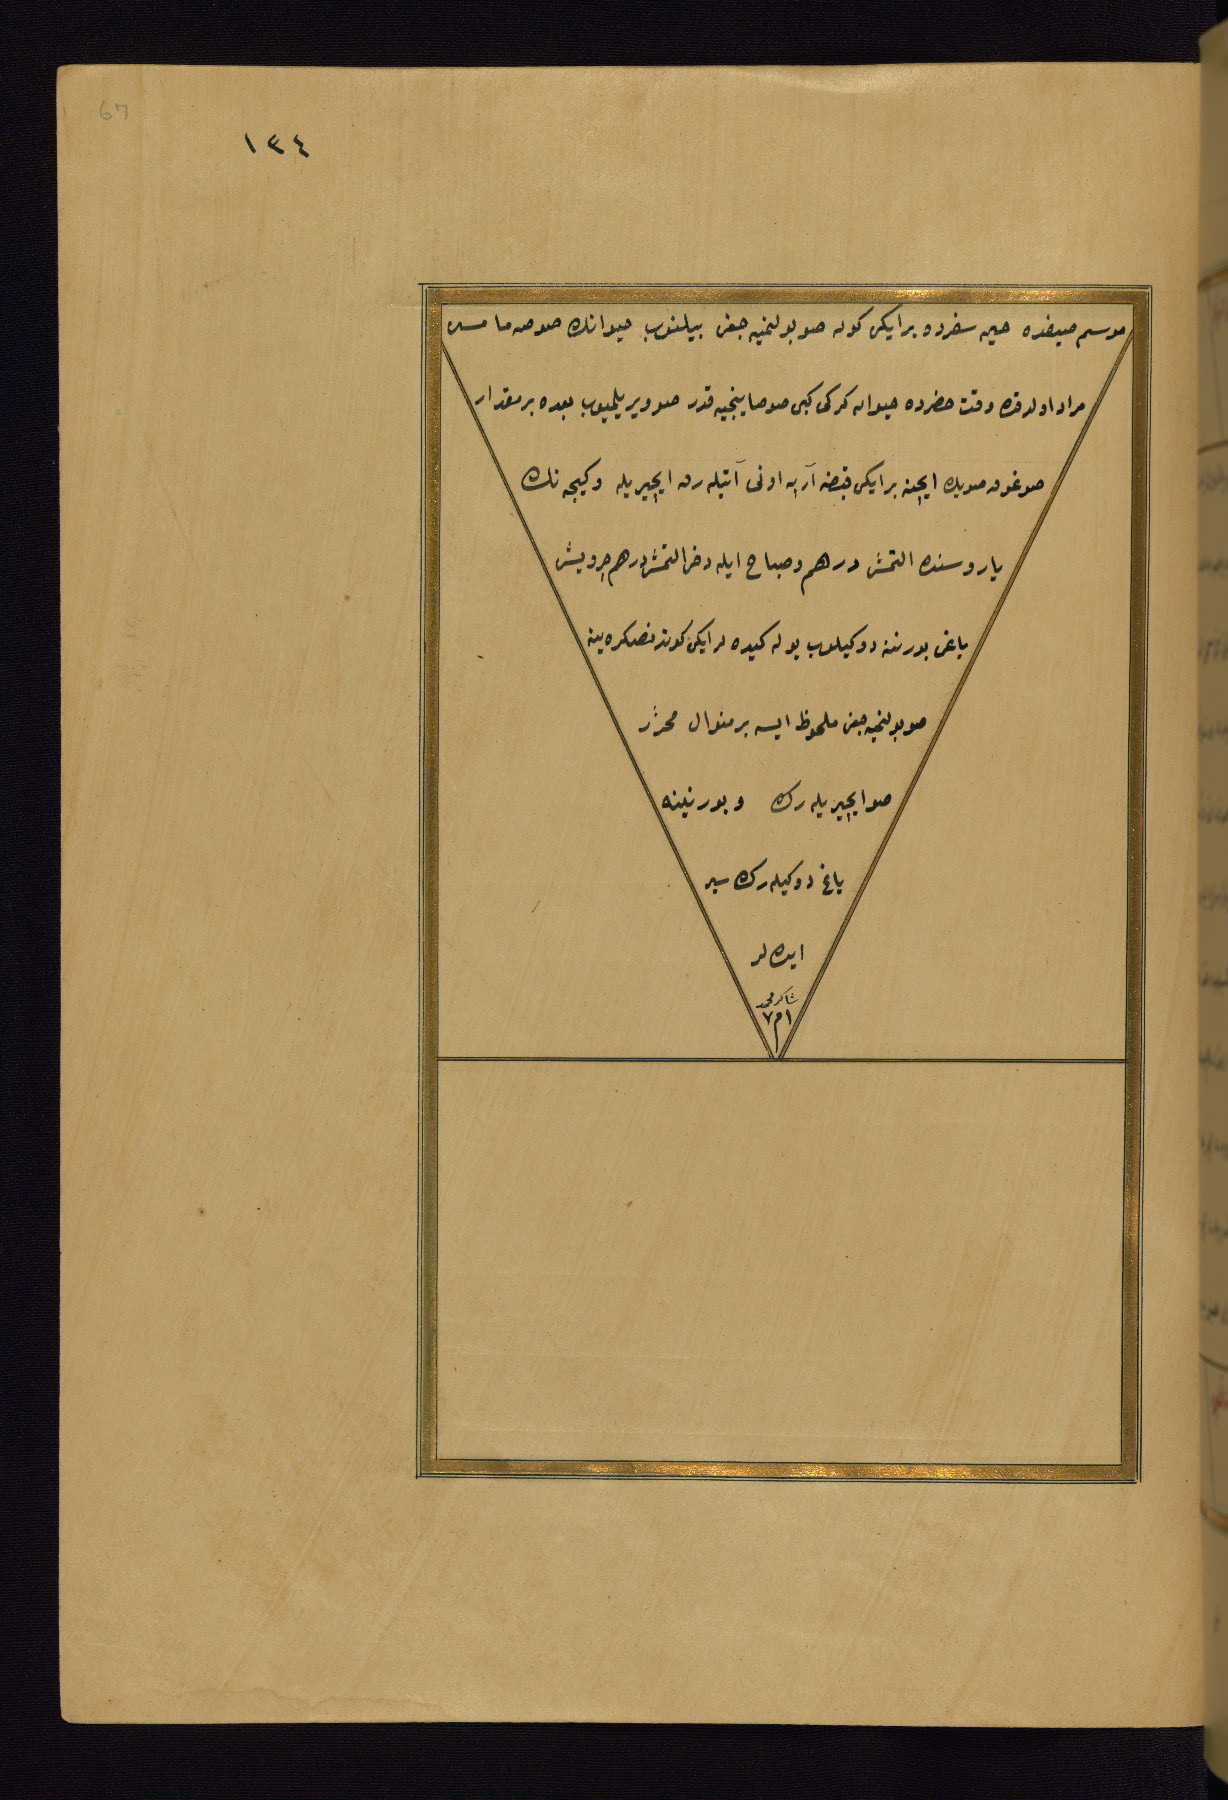 ١٣٤
67
موسم صيفده حين سفرده بر ايكى كون صو بولنميه جغى بيلنوب حيوانك صوصامامسى
مراد اولدقده وقت حضرده حيوانه كركى كبى صوصاينجيه قدر صو ويريلميوب بعده بر مقدار
صغوق صويك ايچنه بر ايكى قبضه آرپه اونى آتيله رق ايچيريله وكيجه نك
ياروسنده التمش درهم وصباح ايله دخى التمش درهم چرويش
ياغى بورننه دوكيلوب يوله كيده لر ايكى كوندنصكره ينه
صو بولنميه جغى ملحوظ ايسه بر منوال محرر
صو ايچيريله رك وبورنينه
ياغ دوكيله رك سير
ايده لر
شاكر محمد